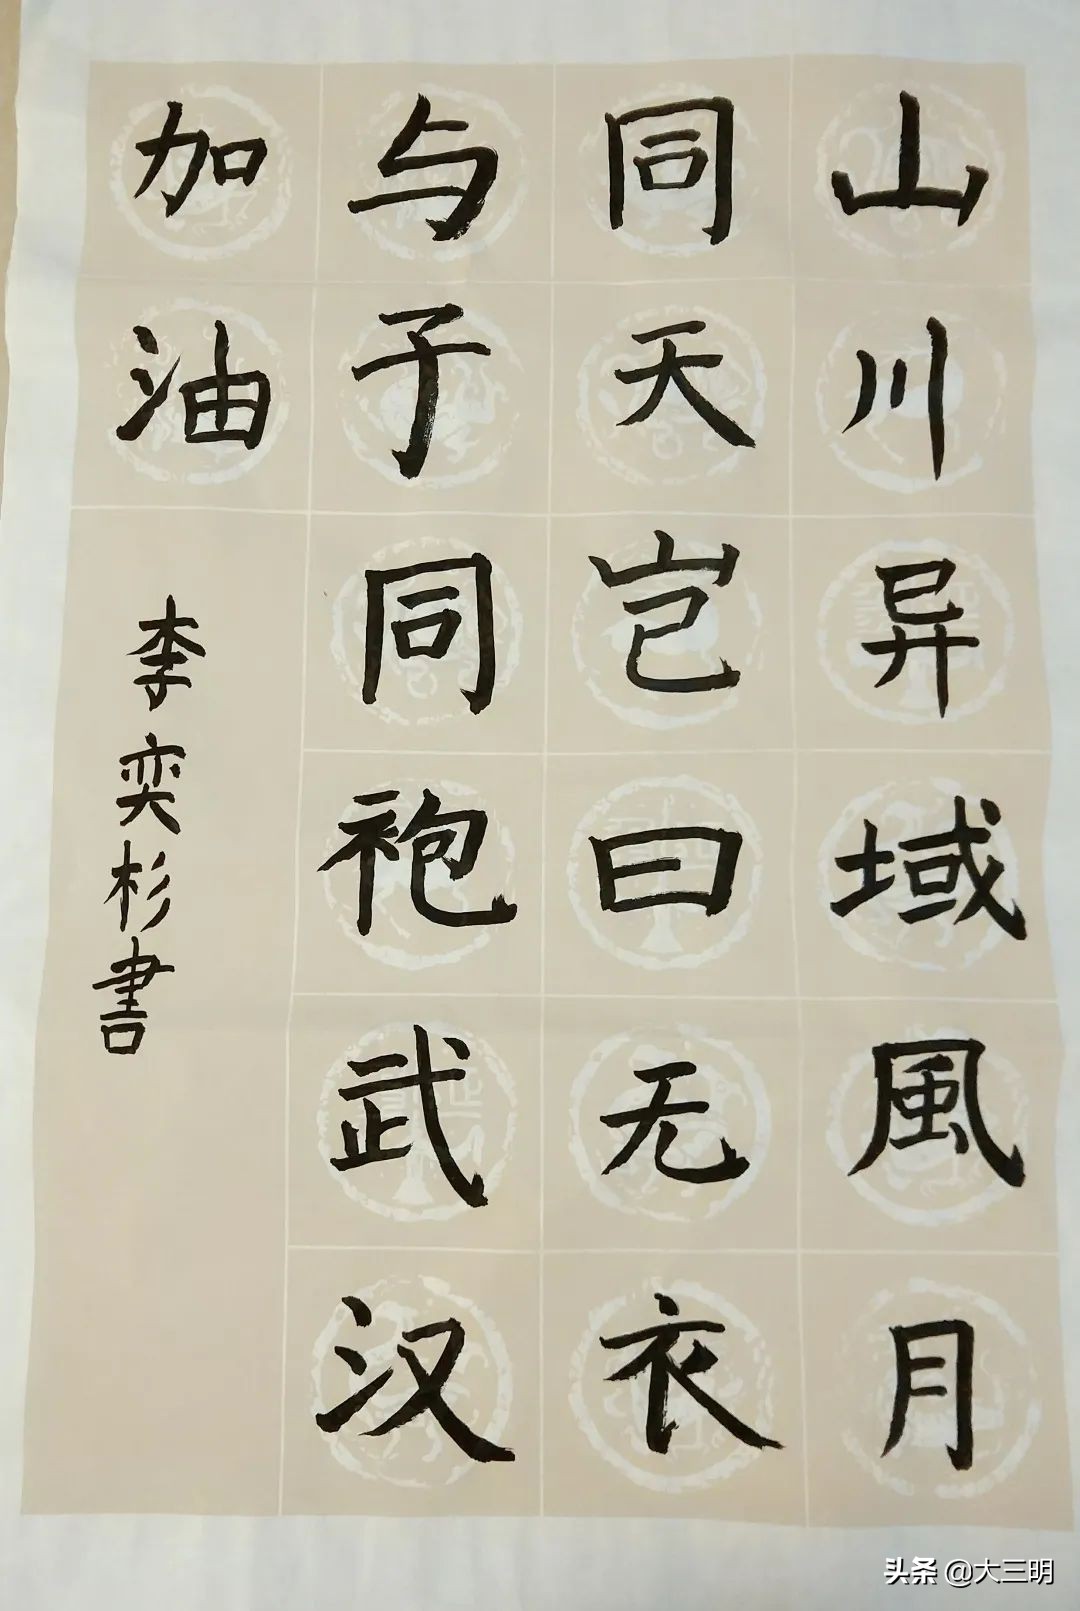 山川异域風月
同天岂曰无衣
与子同袍武汉
加油
李奕杉書
头条 @大三明